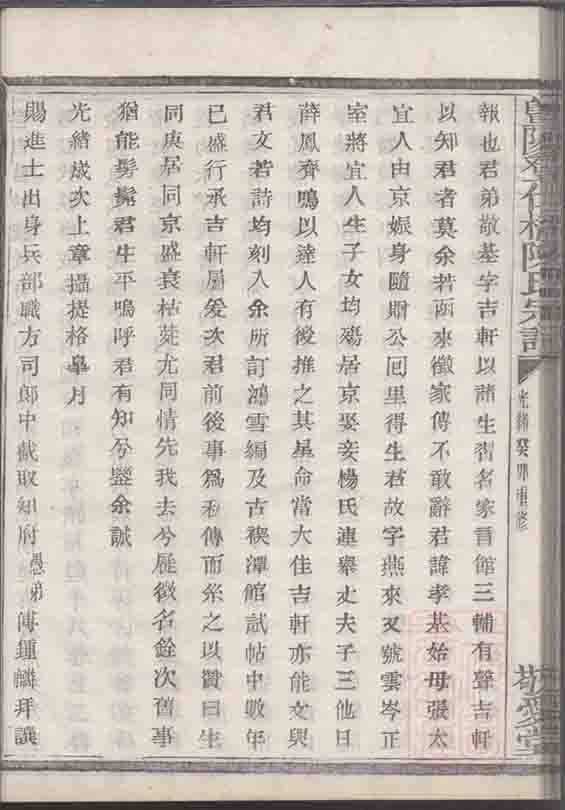 報也君弟敬基字吉軒以諸生習名家言館三輔有聲吉軒
以知君者莫余若函來徵家傳不敢辭君諱孝基始母張太
宜人由京娠身隨贈公囘里得生君故字燕來又號雲岑正
室將宜人生子女均殤居京娶妾楊氏連舉丈夫子三他日
薛鳳齊鳴以達人有後推之其星命當大佳吉軒亦能文與
君文若詩均刻入余所訂鴻雪編及古禊潭館試帖中數年
已盛行承吉軒屬爰次君前後事爲私傳而系之以贊曰生
同庚居同京盛衰枯菀尤同情先我去兮屣微名銓次舊事
猶能髣髴君生平嗚呼君有知兮鑒余誠
光緒歲次上章攝提格皐月
賜進士出身兵部職方司郎中截取知府愚弟傅鍾麟拜譔
陳氏宗譜
光緒癸卯重修
敬愛堂